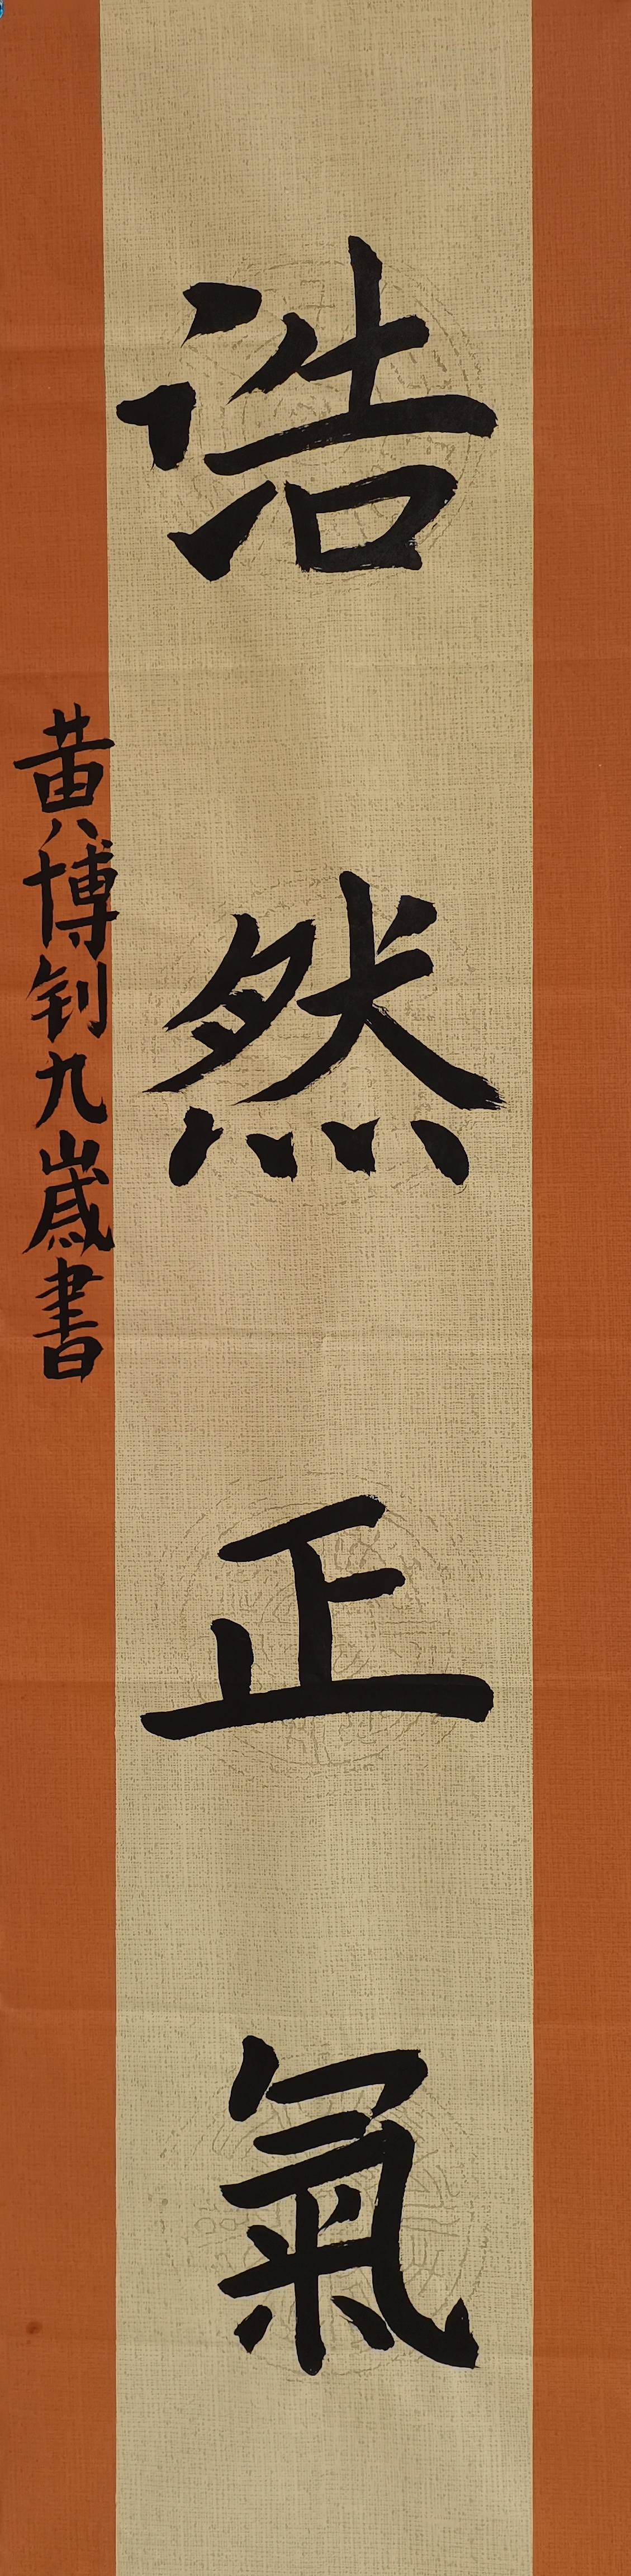 浩然正氣
黄博钊九歲書